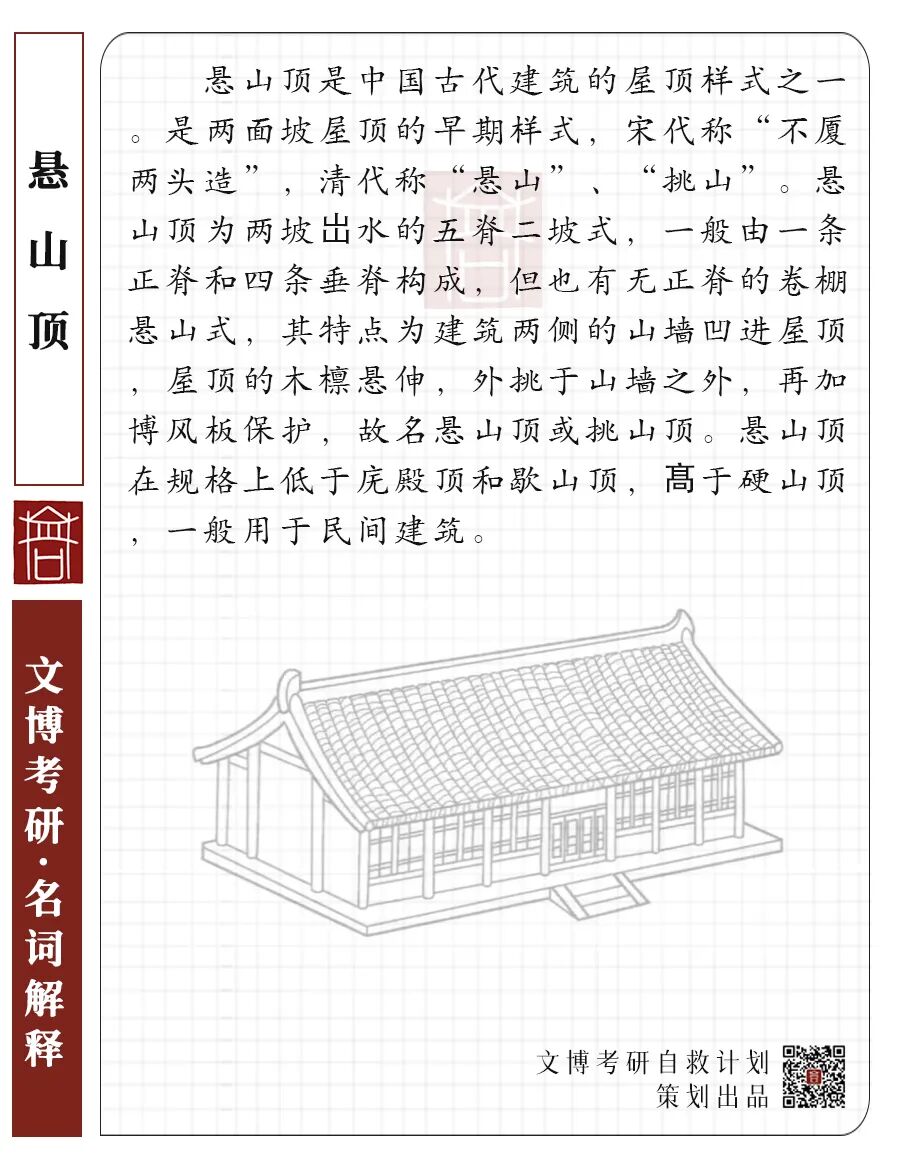 悬山顶
文博考研·名词解释
悬山顶是中国古代建筑的屋顶样式之一
。是两面坡屋顶的早期样式，宋代称“不厦
两头造”，清代称“悬山”、“挑山”。悬
山顶为两坡出水的五脊二坡式，一般由一条
正脊和四条垂脊构成，但也有无正脊的卷棚
悬山式，其特点为建筑两侧的山墙凹进屋顶
，屋顶的木檩悬伸，外挑于山墙之外，再加
博风板保护，故名悬山顶或挑山顶。悬山顶
在规格上低于庑殿顶和歇山顶，高于硬山顶
，一般用于民间建筑。
文博考研自救计划
策划出品